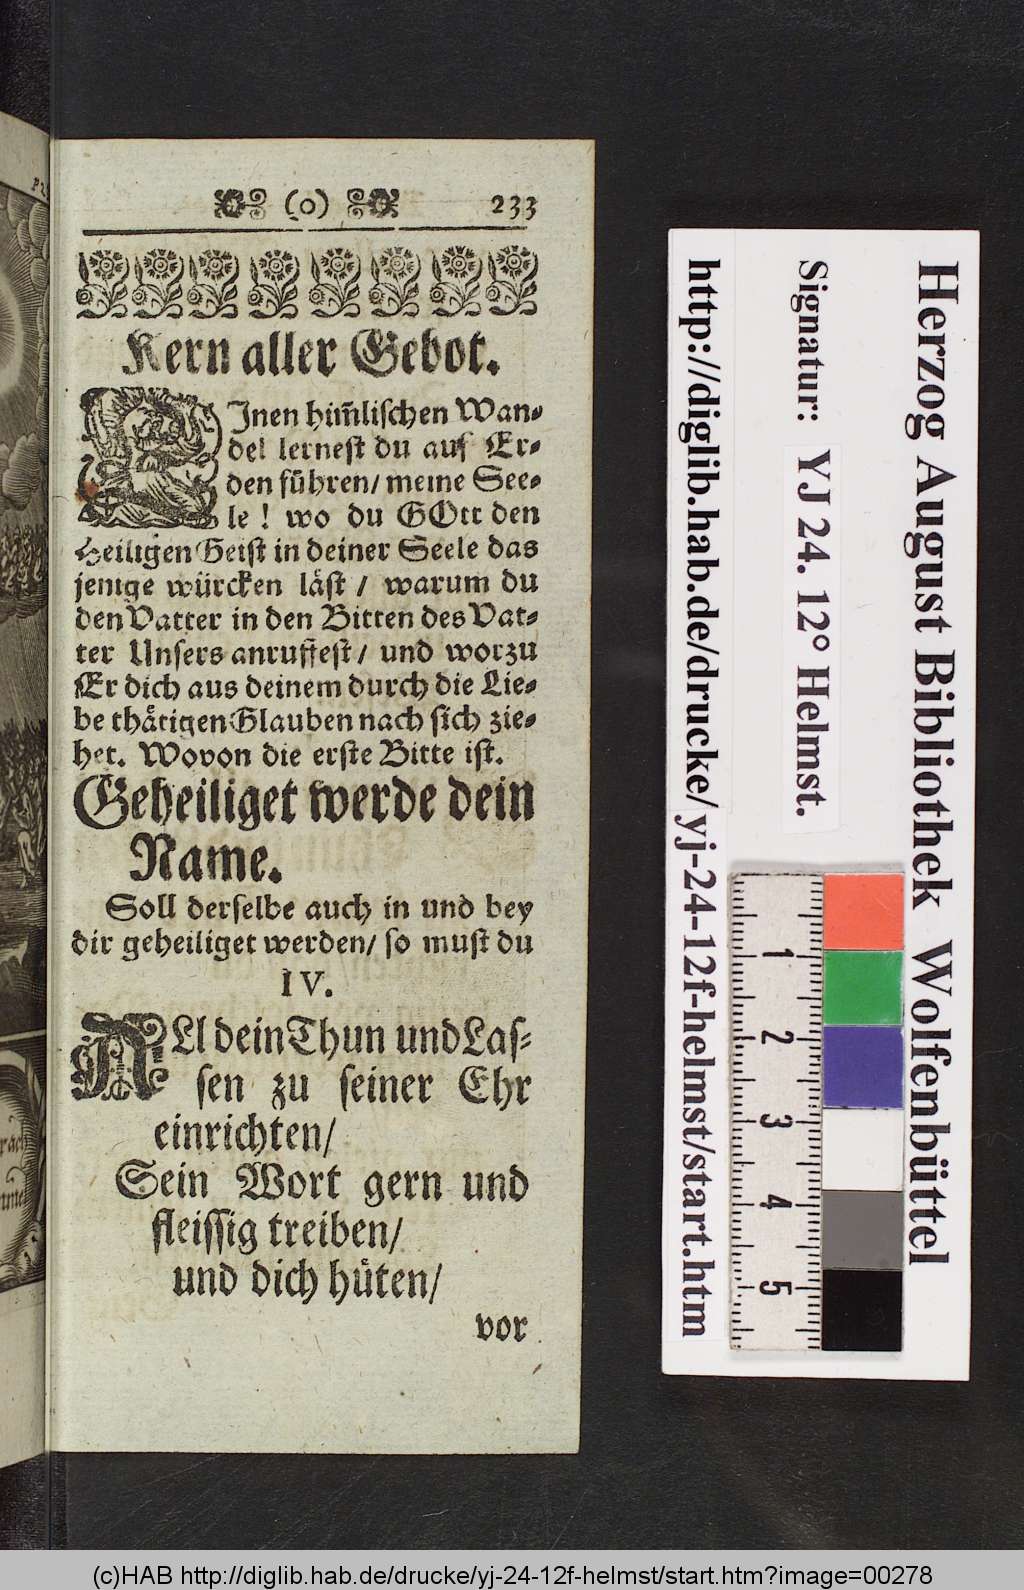 (o) 233
Kern aller Gebot.
EJnen him̃lischen Wan-
del lernest du auf Er-
den führen/ meine See-
le ! wo du GOtt den
Heiligen Geist in deiner Seele das
jenige würcken läst / warum du
den Vatter in den Bitten des Vat-
ter Unsers anruffest/ und worzu
Er dich aus deinem durch die Lie-
be thätigen Glauben nach sich zie-
het. Wovon die erste Bitte ist.
Geheiliget werde dein
Name.
Soll derselbe auch in und bey
dir geheiliget werden/ so must du
IV.
ALl dein Thun und Las-
sen zu seiner Ehr
einrichten/
Sein Wort gern und
fleissig treiben/
und dich hüten/
vor
Herzog August Bibliothek Wolfenbüttel
Signatur: YJ 24. 12° Helmst.
http://diglib.hab.de/drucke/yj-24-12f-helmst/start.htm
1
2
3
4
5
(c)HAB http://diglib.hab.de/drucke/yj-24-12f-helmst/start.htm?image=00278